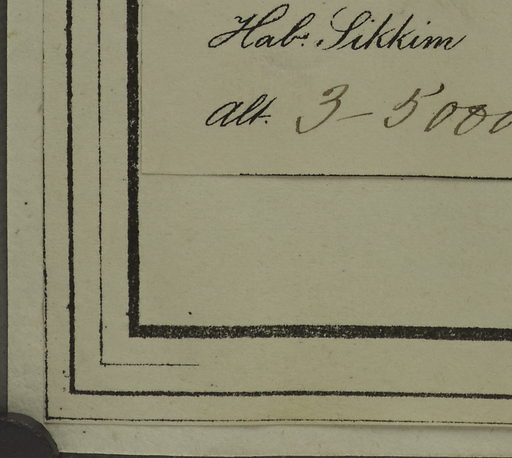 Hab. Sikkim
alt. 3-5000